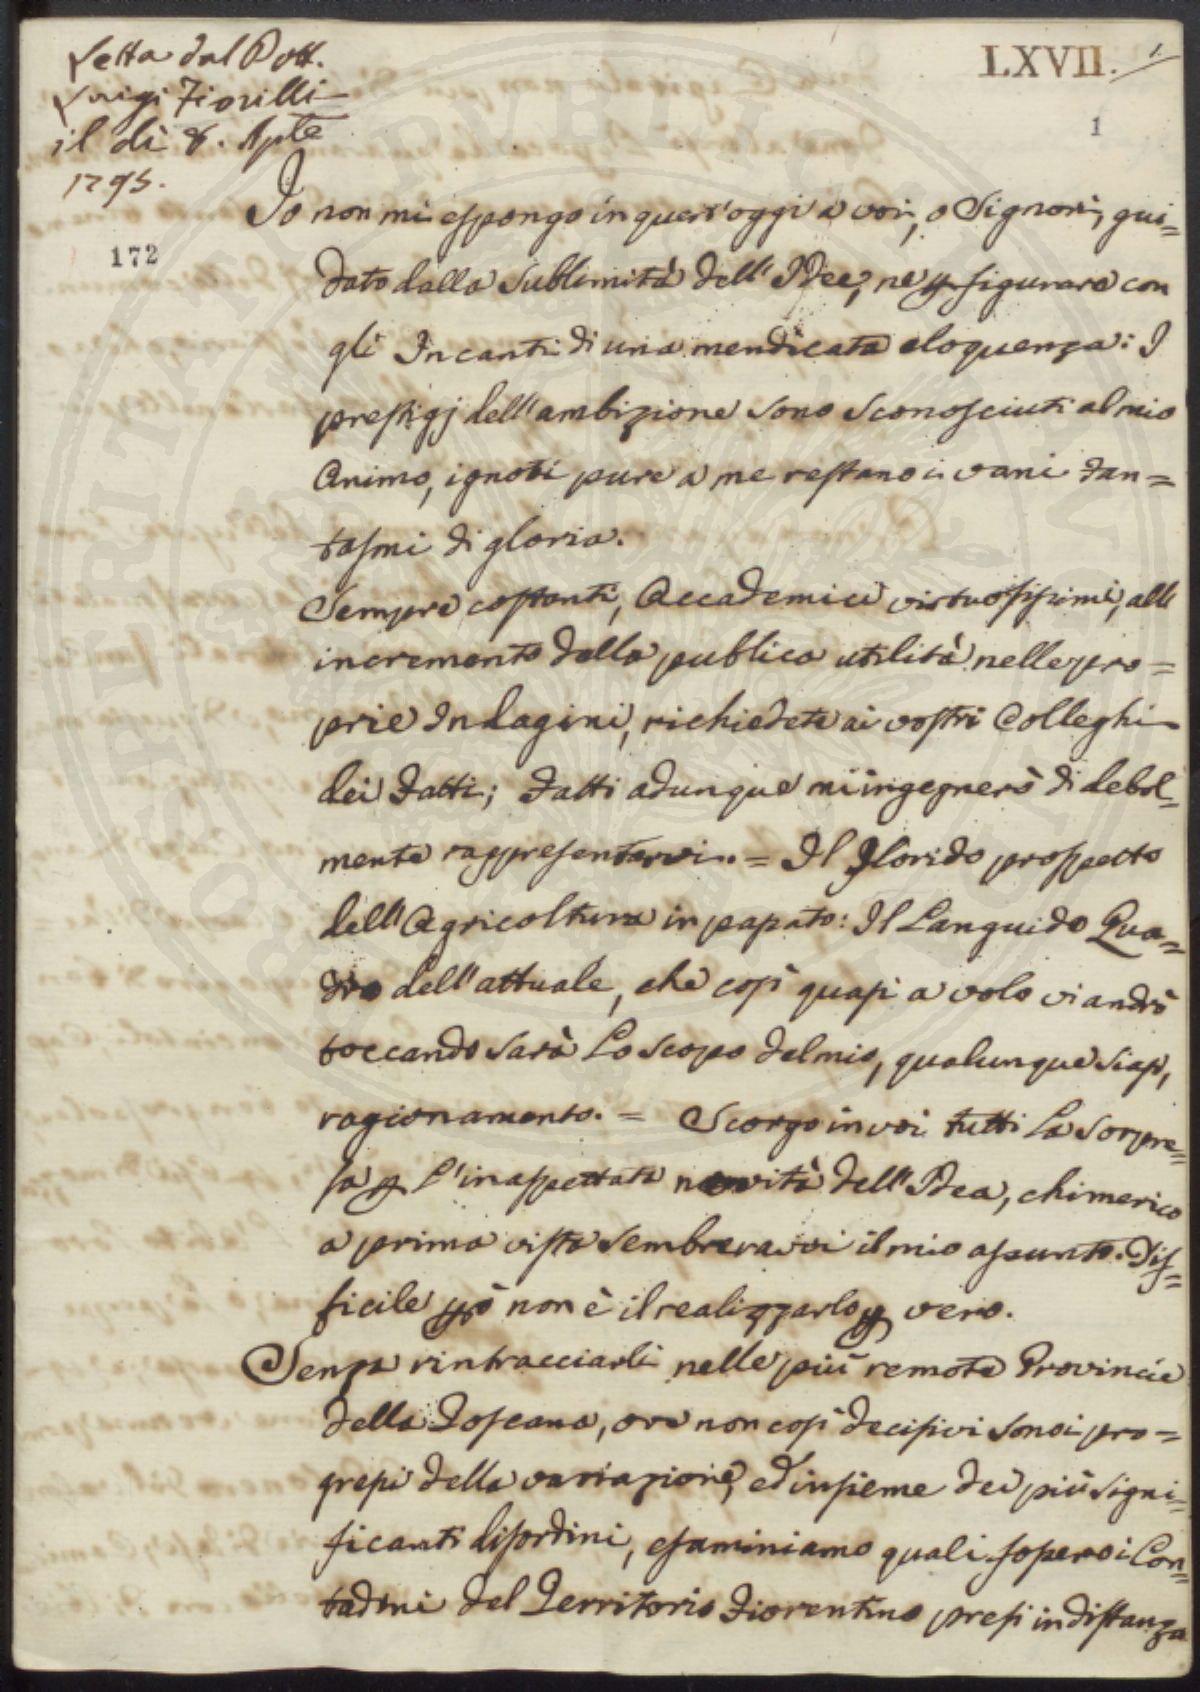 Letta dal Dott.
Luigi Fiorilli
il dì 8. Aple
1795.
LXVII. 1.
1
172
Io non mi espongo in quest'oggi a voi, o Signori, gui=
dato dalla sublimità dell'Idee, nè p figurare con
gli Incanti di una mendicata eloquenza: I
prestigj dell'ambizione sono sconosciuti al mio
Animo, ignoti pure a me restano i vani Fan=
tasmi di gloria.
Sempre costanti, Accademici virtuosissimi, all'
incremento della publica utilità nelle pro=
prie Indagini, richiedete ai vostri Colleghi
dei Fatti; Fatti adunque mi ingegnerò di debol=
mente rappresentarvi. = Il Florido prospetto
dell'Agricoltura in passato: Il Languido Qua=
dro dell'attuale, che così quasi a volo vi andrò
toccando sarà Lo scopo del mio, qualunque siasi,
ragionamento. = Scorgo in voi tutti La Sorpre=
sa p L'inaspettata novità dell'Idea, chimerico
a prima vista sembreravvi il mio assunto. Dif=
ficile pò non è il realizzarlo p vero.
Senza rintracciarli nelle più remote Provincie
della Toscana, ove non così decisivi sono i pro=
gressi della variazione, ed insieme dei più signi=
ficanti disordini, esaminiamo quali fossero i Con=
tadini del Territorio Fiorentino presi in distanza